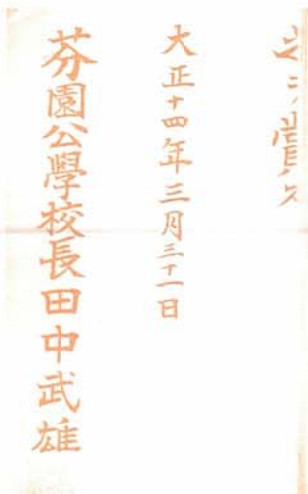 大正十四年三月三十一日
芬園公學校長田中武雄